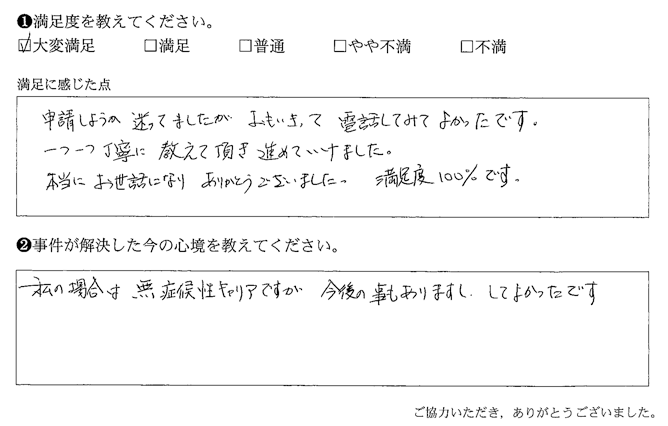 ❶満足度を教えてください。
☑大変満足 □満足 □普通 □やや不満 □不満
満足に感じた点
申請しようか 迷ってましたが おもいきって 電話してみて よかったです。
一つ一つ丁寧に 教えて頂き 進めていけました。
本当に お世話になり ありがとうございました。 満足度100%です。
❷事件が解決した今の心境を教えてください。
私の場合は 無症候性キャリアですが 今後の事もありますし、してよかったです
ご協力いただき，ありがとうございました。